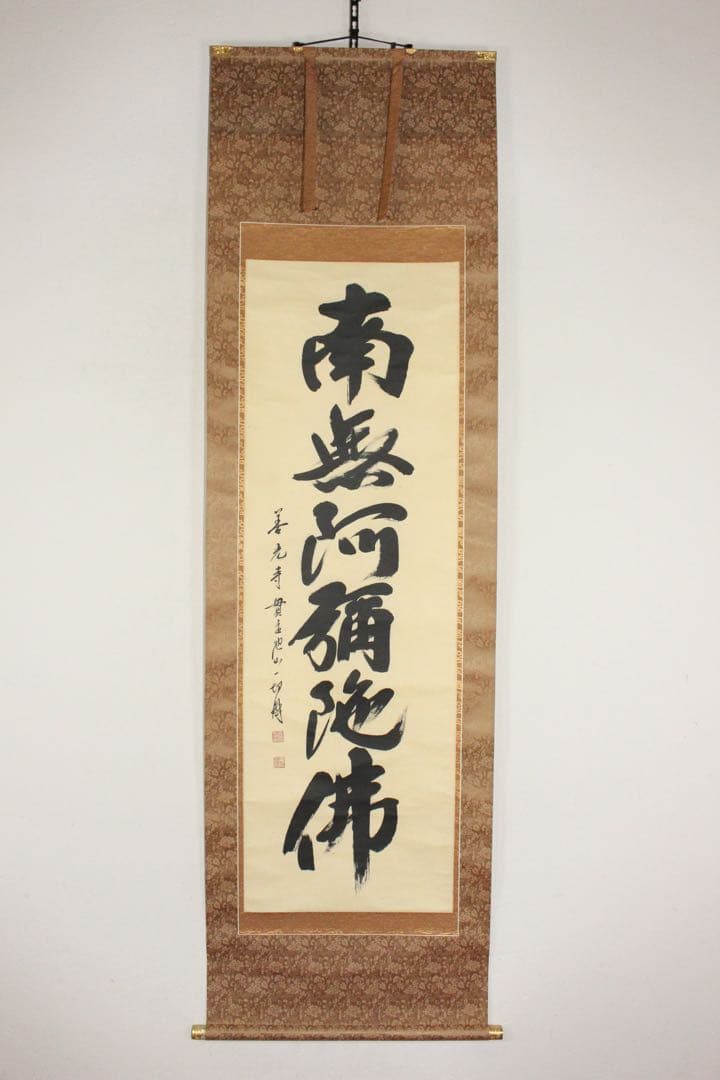 南無阿彌陀佛
善光寺 貫主